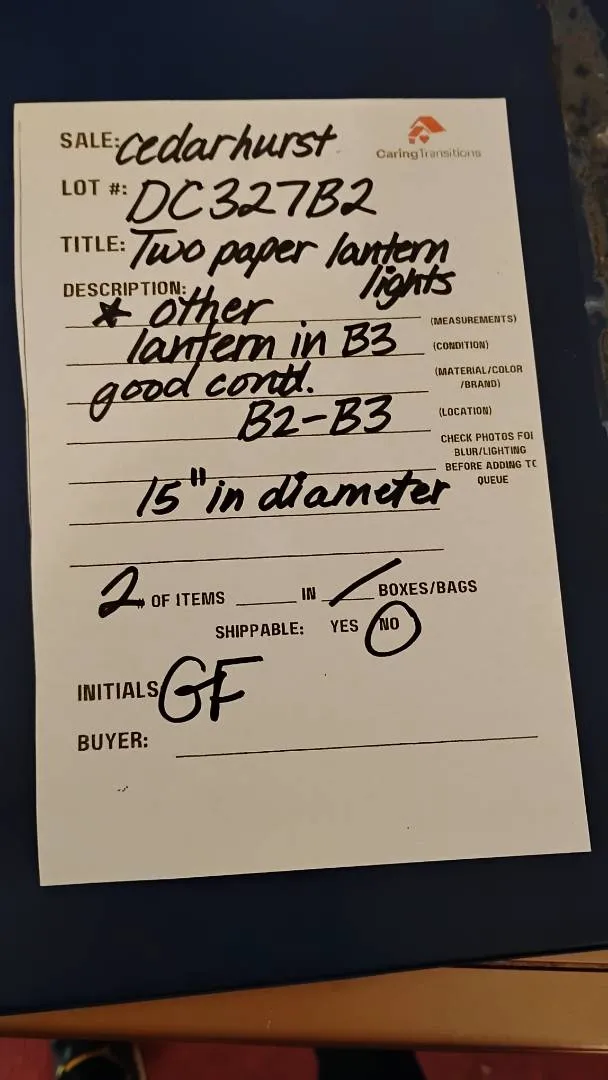 SALE: cedarhurst
CaringTransitions
LOT #: DC327B2
TITLE: Two paper lantern
lights
DESCRIPTION:
* other
(MEASUREMENTS)
lantern in B3
(CONDITION)
good cond.
(MATERIAL/COLOR
/BRAND)
B2-B3
(LOCATION)
CHECK PHOTOS FOR
BLUR/LIGHTING
BEFORE ADDING TO
QUEUE
15" in diameter
2 # OF ITEMS ____ IN / BOXES/BAGS
SHIPPABLE: YES NO
INITIALS GF
BUYER: